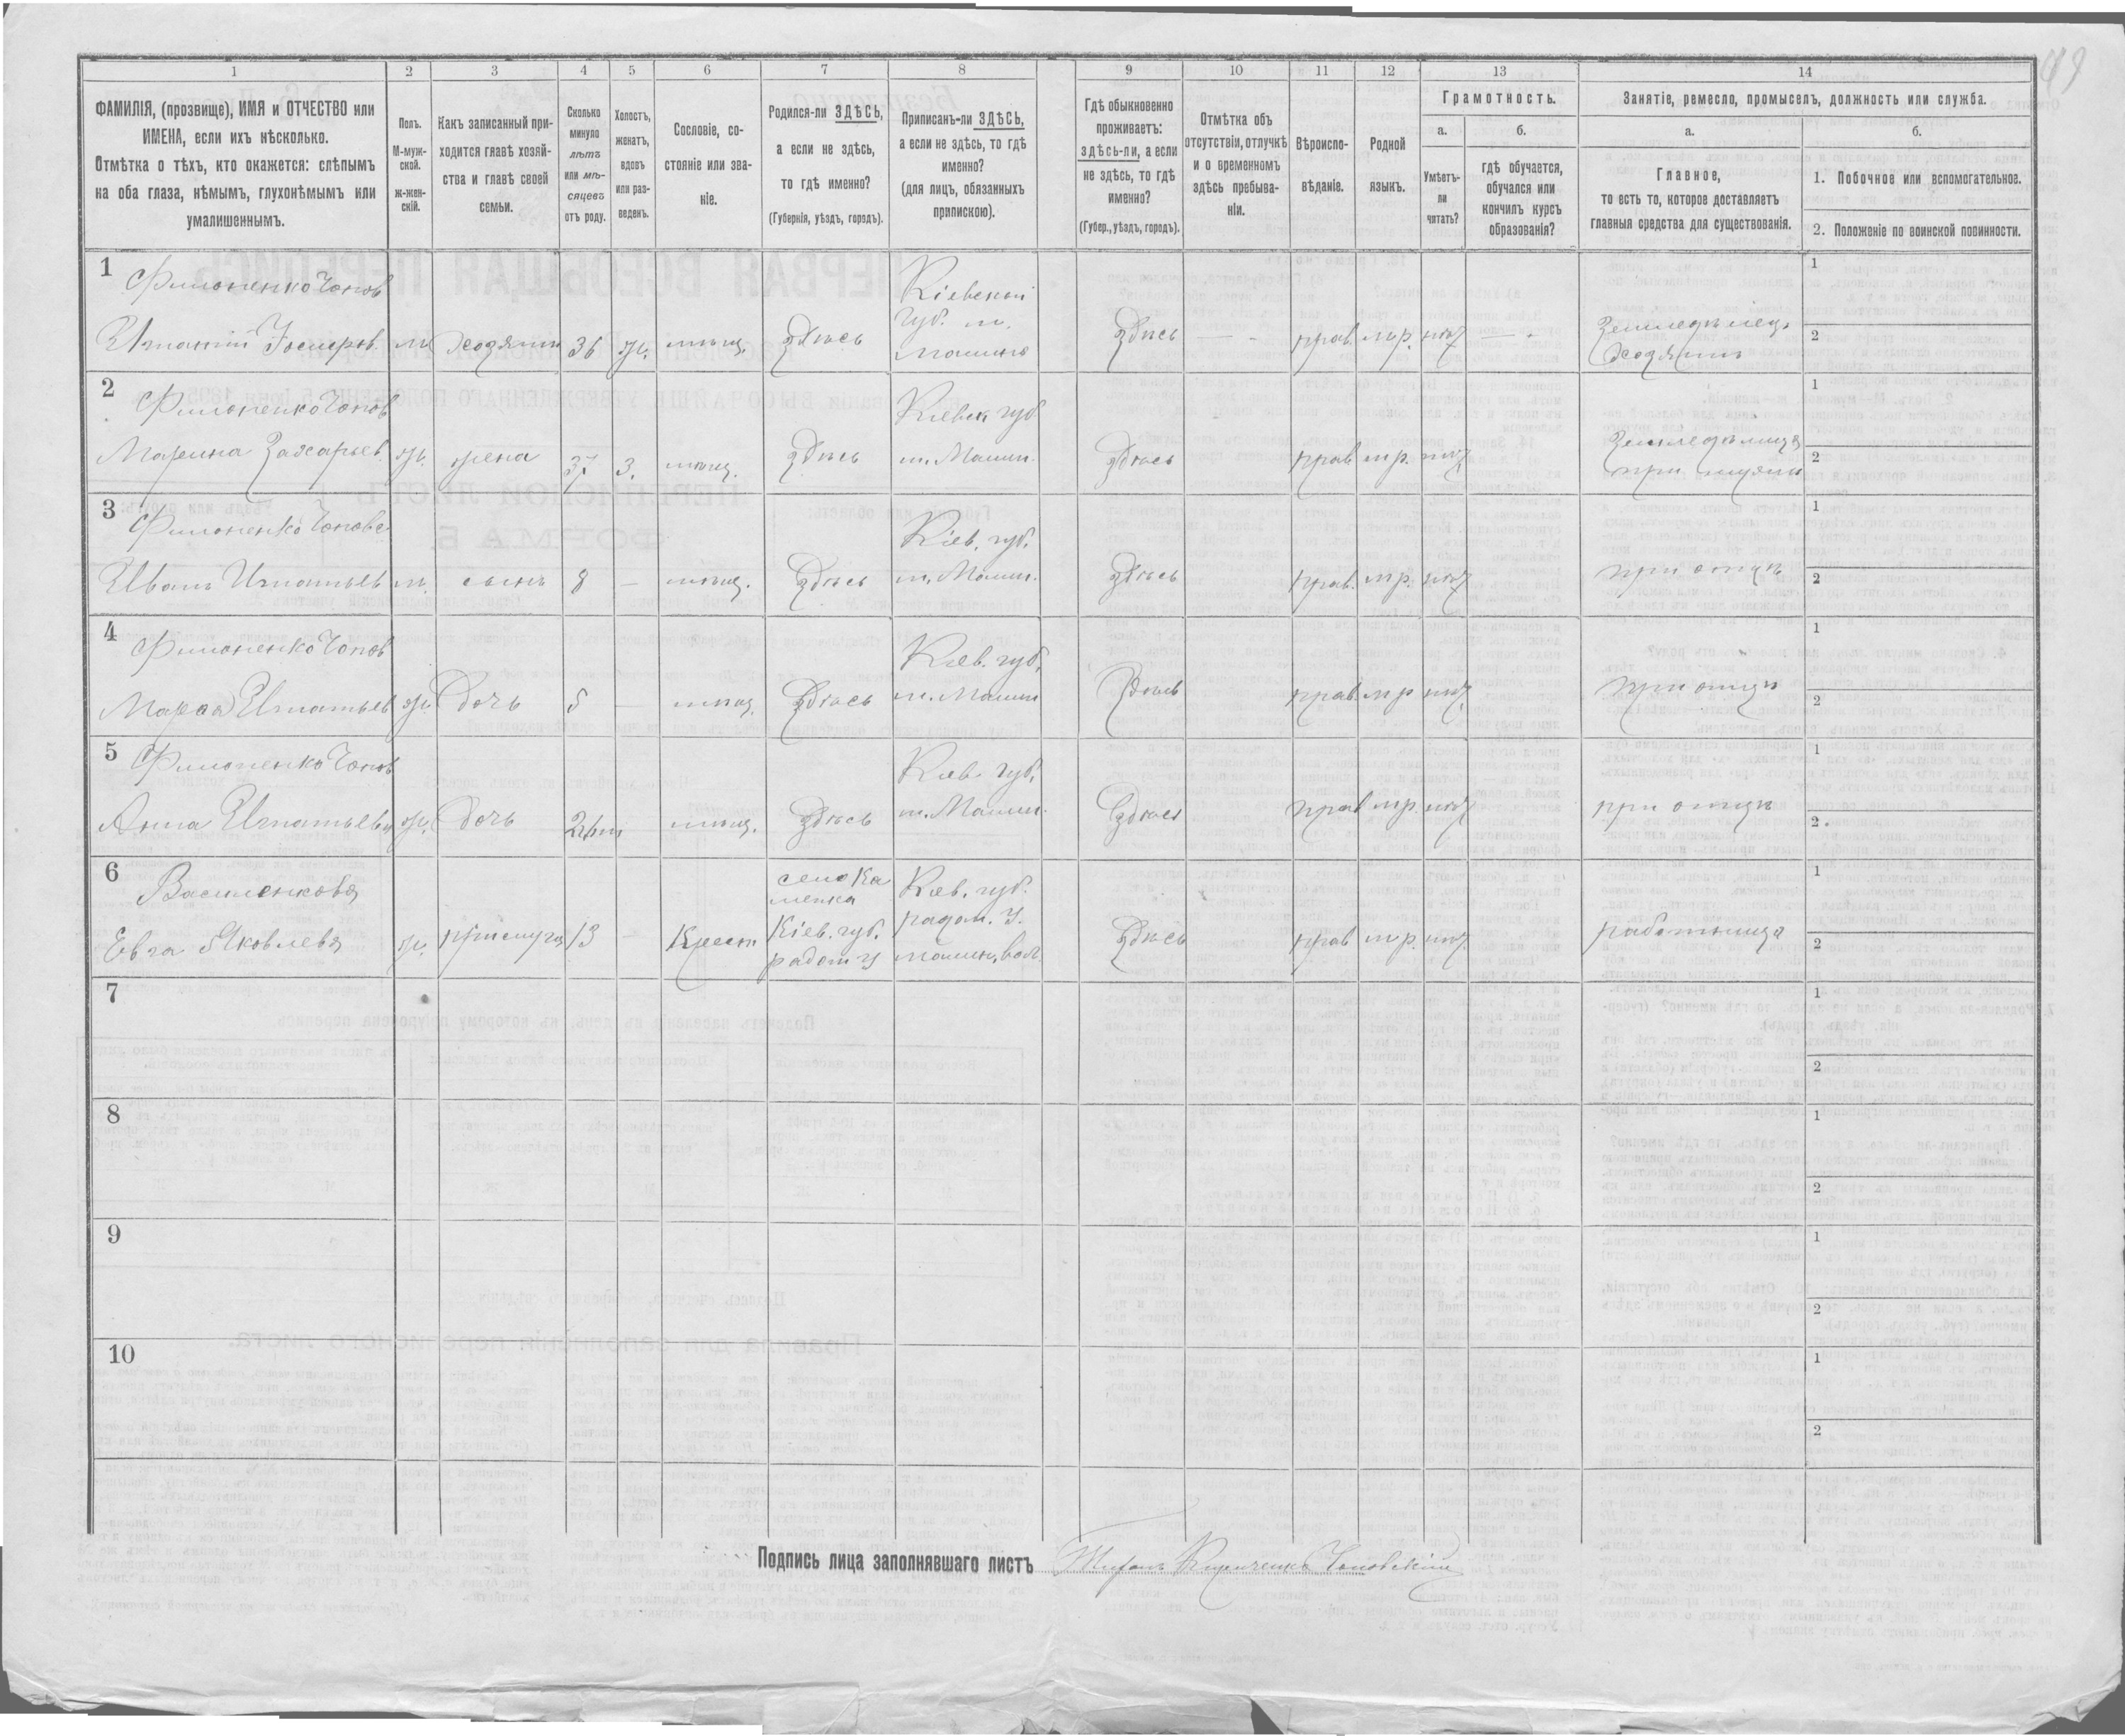 49
1 2 3 4 5 6 7 8 9 10 11 12 13 14
ФАМИЛІЯ, (прозвище), ИМЯ и ОТЧЕСТВО или
ИМЕНА, если ихъ нѣсколько.
Отмѣтка о тѣхъ, кто окажется: слѣпымъ
на оба глаза, нѣмымъ, глухонѣмымъ или
умалишеннымъ.
Полъ.
М-муж-
ской.
ж-жен-
скій.
Какъ записанный при-
ходится главѣ хозяй-
ства и главѣ своей
семьи.
Сколько
минуло
лѣтъ
или мѣ-
сяцевъ
отъ роду.
Холостъ,
женатъ,
вдовъ
или раз-
веденъ.
Сословіе, со-
стояніе или зва-
ніе.
Родился-ли ЗДѢСЬ,
а если не здѣсь,
то гдѣ именно?
(Губернія, уѣздъ, городъ).
Приписанъ-ли ЗДѢСЬ,
а если не здѣсь, то гдѣ
именно?
(для лицъ, обязанныхъ
припискою).
Гдѣ обыкновенно
проживаетъ:
здѣсь-ли, а если
не здѣсь, то гдѣ
именно?
(Губер., уѣздъ, городъ).
Отмѣтка объ
отсутствіи, отлучкѣ
и о временномъ
здѣсь пребыва-
ніи.
Вѣроиспо-
вѣданіе.
Родной
языкъ.
Грамотность.
а.
Умѣетъ-
ли
читать?
б.
гдѣ обучается,
обучался или
кончилъ курсъ
образованія?
Занятіе, ремесло, промыселъ, должность или служба.
а.
Главное,
то есть то, которое доставляетъ
главныя средства для существованія.
б.
1. Побочное или вспомогательное.
2. Положеніе по воинской повинности.
1 Филоненко Чопов Кіевской 1
губ. м.
Игнатій м. хозяинъ 36 ж. мѣщ. здѣсь Малино здѣсь — - прав. мр. нѣт — . Земледѣлец 2
хозяинъ
2 Филоненко Чопов Кіевск. губ 1
Марина Захарьев. ж. жена 37 з. мѣщ. здѣсь м. Малин. здѣсь прав. мр. нѣт Земледѣлица 2
при мужи
3 Филоненко Чопов Кіев. губ. 1
Иванъ Игнатьев м. сынъ 8 — мѣщ. здѣсь м. Малин. здѣсь прав. мр. нѣт при отцѣ 2
4 Филоненко Чопов Кіев. губ. 1
Мария Игнатьев ж. дочь 5 — мѣщ. здѣсь м. Малин здѣсь прав. мр. нѣт при отцѣ 2
5 Филоненко Чопов Кіев. губ. 1
Анна Игнатьевн ж. дочь мѣщ. здѣсь м. Малин. здѣсь прав. мр. нѣт при отцѣ 2
6 Василенкова село Ка Кіев. губ. 1
менка
Евга Яковлева ж. прислуга 13 — Крест Кіев. губ. радом. у. здѣсь прав. мр. нѣт работница 2
радом у малин. вол.
7 1
2
8 1
2
9 1
2
10 1
2
Подпись лица заполнявшаго листъ Чоповскій